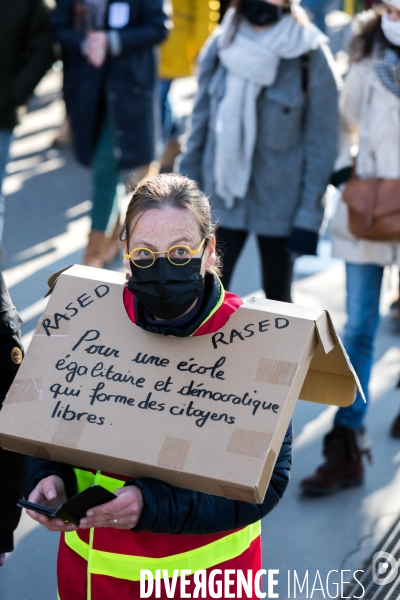 RASED
RASED
Pour une école
égolitaire et démocratique
qui forme des citoyens
libres.
DIVERGENCE IMAGES